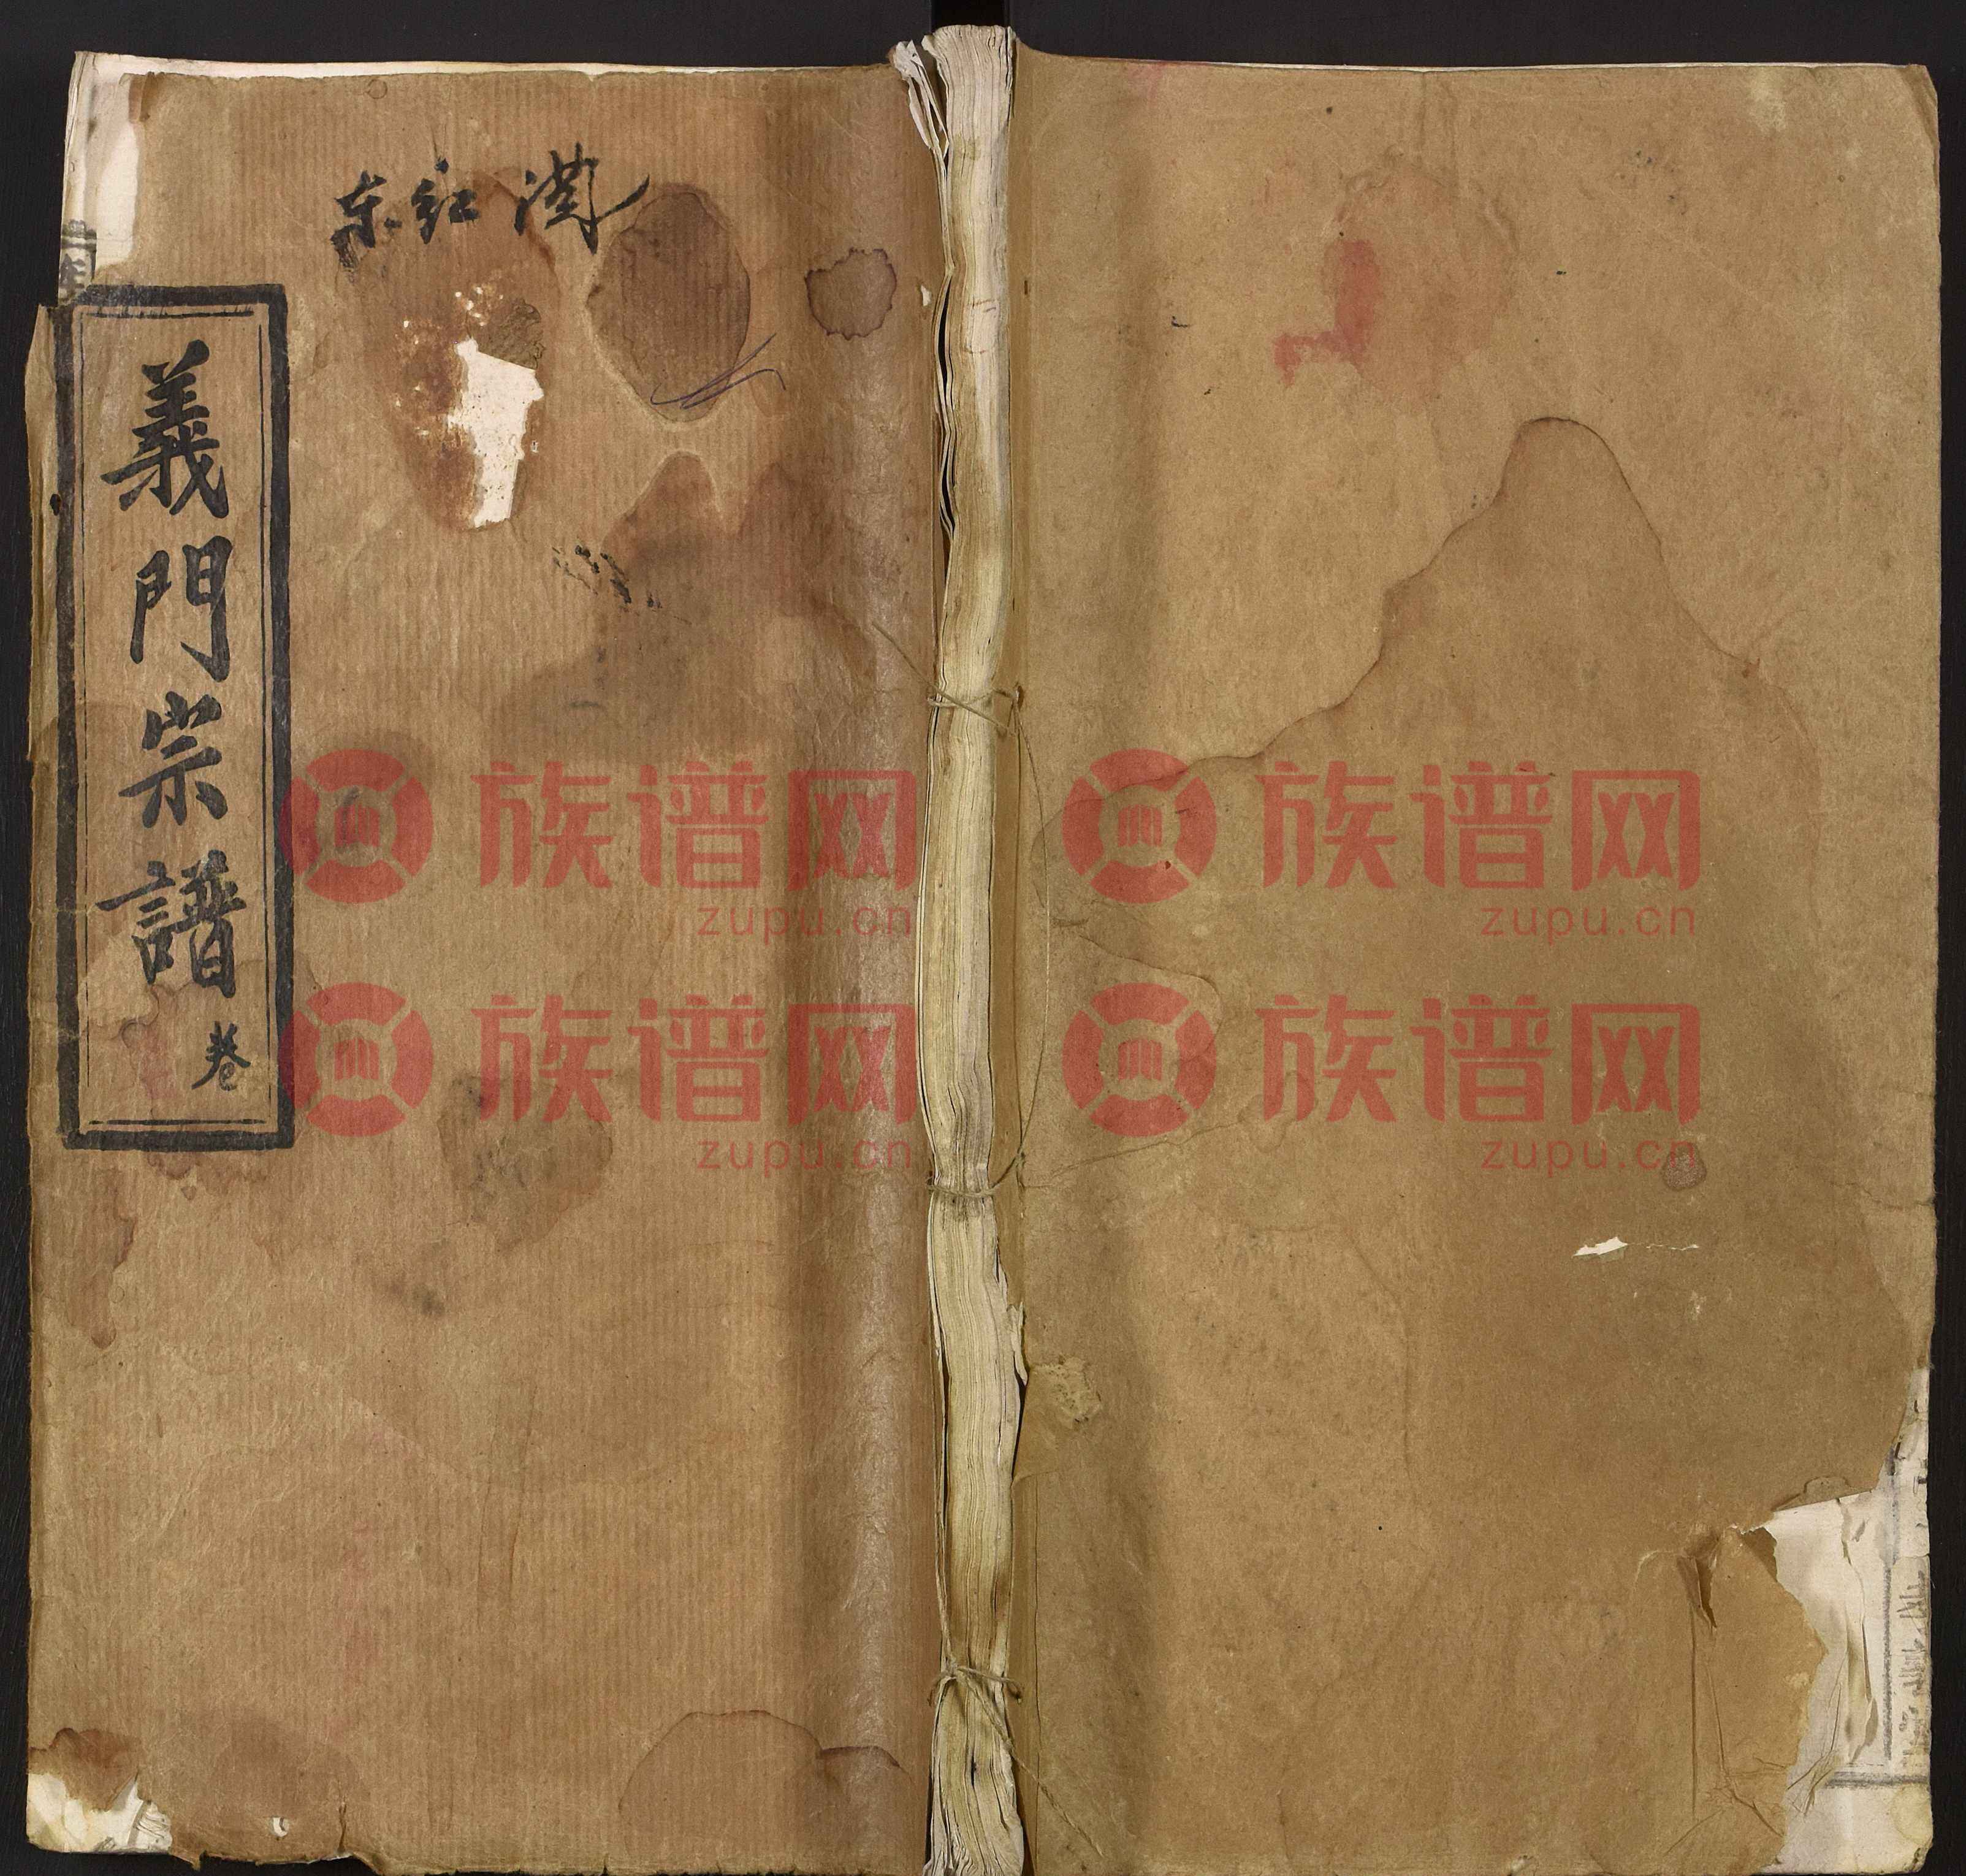 东红满
義門宗譜
卷
族谱网
zupu.cn
族谱网
zupu.cn
族谱网
zupu.cn
族谱网
zupu.cn